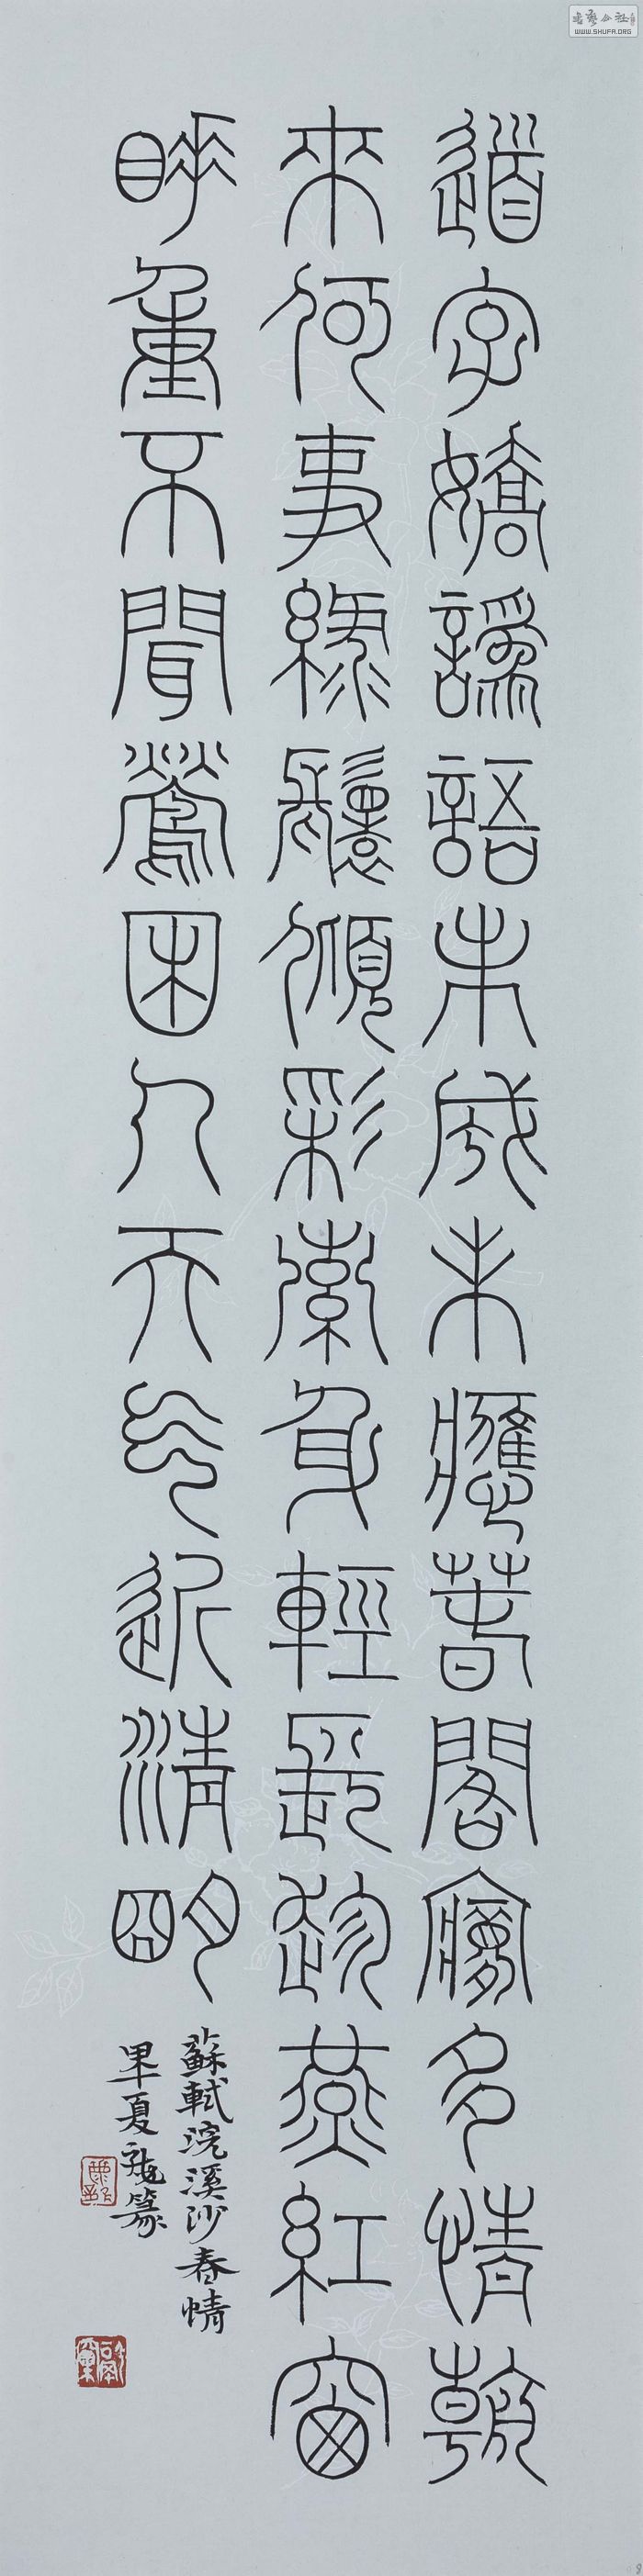 道字嬌譌語未成未應春閣夢多情朝
來何事綠鬟傾彩索身輕長趁燕紅窗
睡重不聞鶯困人天氣近清明
蘇軾浣溪沙春情
畢夏 篆
WWW.SHUFA.ORG